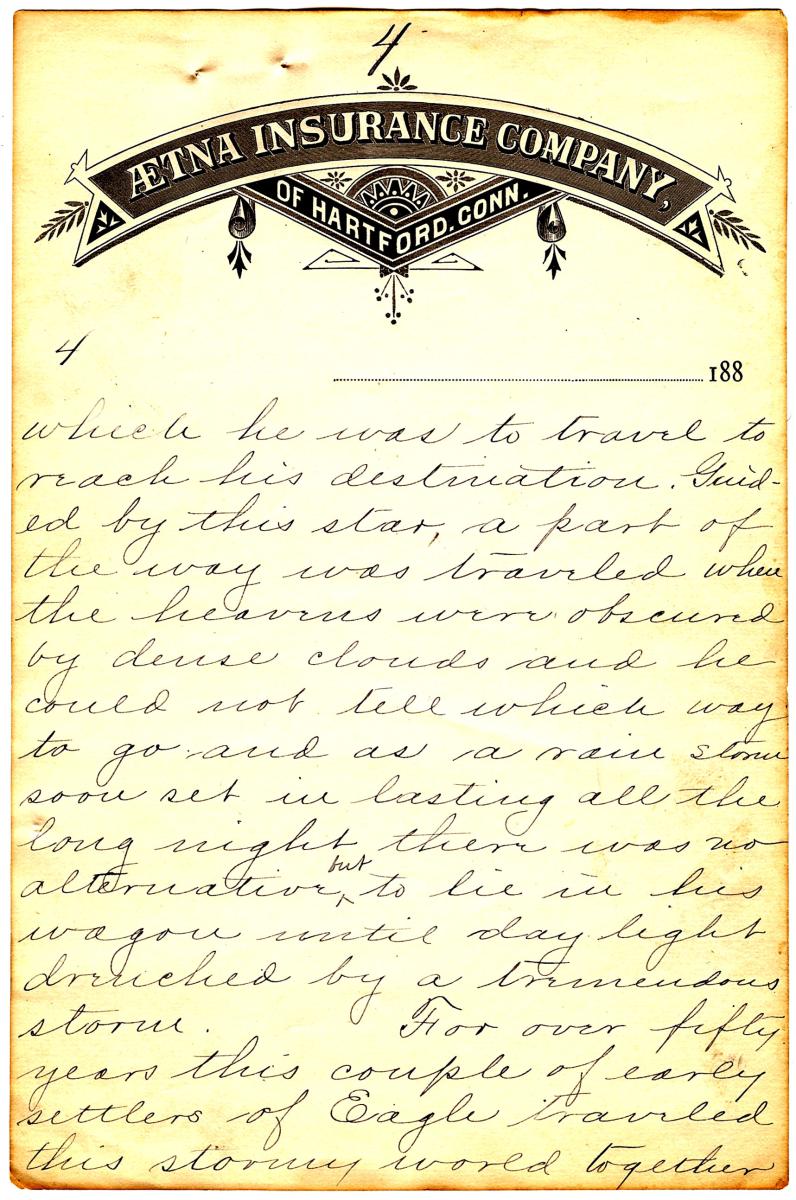 4
ÆTNA INSURANCE COMPANY,
OF HARTFORD. CONN.
4
188
which he was to travel to
reach his destination. Guid-
ed by this star, a part of
the way was traveled when
the heavens were obscured
by dense clouds and he
could not tell which way
to go and as a rain storm
soon set in lasting all the
long night, there was no
alternative, but to lie in his
wagon until day light
drenched by a tremendous
storm. For over fifty
years this couple of early
settlers of Eagle traveled
this stormy world together